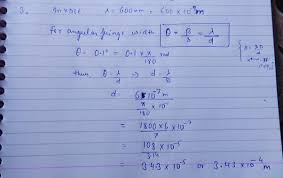 3. λ = 600nm = 600 × 10⁻⁹m
for angular fringe width θ = β/D = λ/d
θ = 0.1° = 0.1 × π/180 rad
thus θ = λ/d ⇒ d = λ/θ
d = 6 × 10⁻⁷m
π
180
= 1800 × 6 × 10⁻⁷
π
= 108 × 10⁻⁵
3.14
= 3.43 × 10⁻⁵ or 3.43 × 10⁻⁴ m